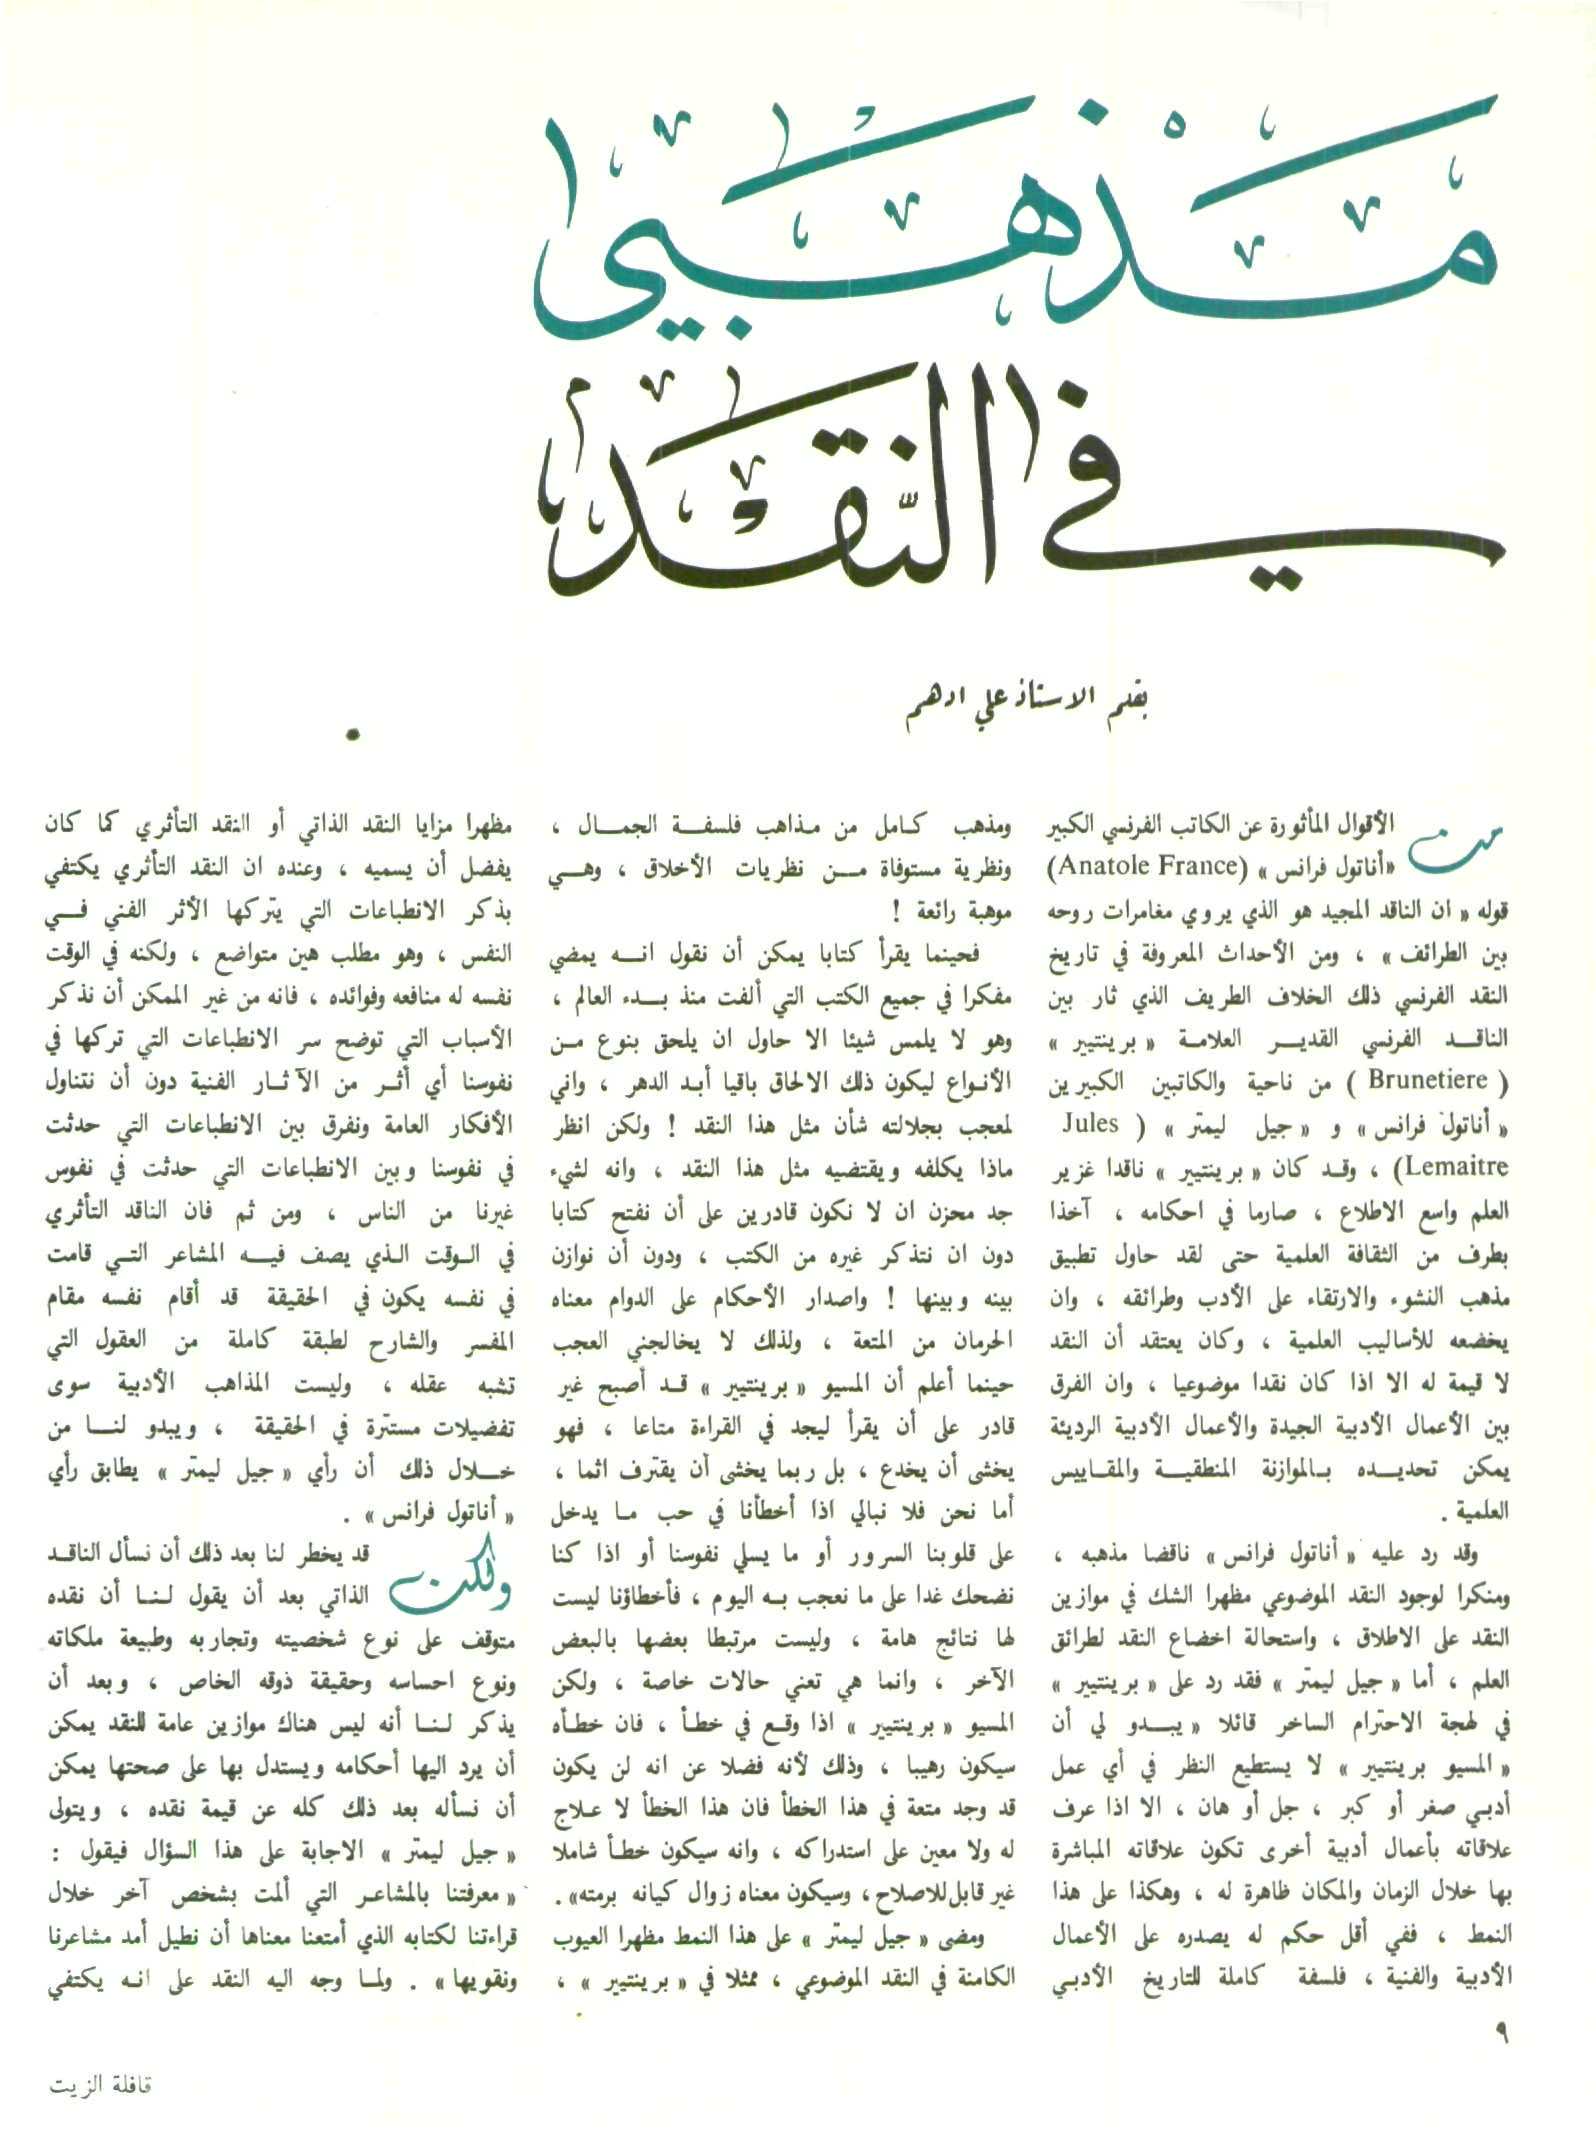 مذهبي
في النقد
بقلم الاستاذ علي ادهم
من الأقوال المأثورة عن الكاتب الفرنسي الكبير
«أناتول فرانس» (Anatole France)
قوله « ان الناقد المجيد هو الذي يروي مغامرات روحه
بين الطرائف » ، ومن الأحداث المعروفة في تاريخ
النقد الفرنسي ذلك الخلاف الطريف الذي ثار بين
الناقد الفرنسي القدير العلامة « برينتيير »
( Brunetiere ) من ناحية والكاتبين الكبيرين
« أناتول فرانس» و « جيل ليمتر » ( Jules
Lemaitre) ، وقد كان « برينتيير » ناقدا غزير
العلم واسع الاطلاع ، صارما في احكامه ، آخذا
بطرف من الثقافة العلمية حتى لقد حاول تطبيق
مذهب النشوء والارتقاء على الأدب وطرائقه ، وان
يخضعه للأساليب العلمية ، وكان يعتقد أن النقد
لا قيمة له الا اذا كان نقدا موضوعيا ، وان الفرق
بين الأعمال الأدبية الجيدة والأعمال الأدبية الرديئة
يمكن تحديده بالموازنة المنطقية والمقاييس
العلمية .
وقد رد عليه « أناتول فرانس» ناقضا مذهبه ،
ومنكرا لوجود النقد الموضوعي مظهرا الشك في موازين
النقد على الاطلاق ، واستحالة اخضاع النقد لطرائق
العلم ، أما « جيل ليمتر » فقد رد على « برينتيير »
في لهجة الاحترام الساخر قائلا « يبدو لي أن
« المسيو برينتيير » لا يستطيع النظر في أي عمل
أدبي صغر أو كبر ، جل أو هان ، الا اذا عرف
علاقاته بأعمال أدبية أخرى تكون علاقاته المباشرة
بها خلال الزمان والمكان ظاهرة له ، وهكذا على هذا
النمط ، ففي أقل حكم له يصدره على الأعمال
الأدبية والفنية ، فلسفة كاملة للتاريخ الأدبي
ومذهب كامل من مذاهب فلسفة الجمال ،
ونظرية مستوفاة من نظريات الأخلاق ، وهي
موهبة رائعة !
فحينما يقرأ كتابا يمكن أن نقول انه يمضي
مفكرا في جميع الكتب التي ألفت منذ بدء العالم ،
وهو لا يلمس شيئا الا حاول ان يلحق بنوع من
الأنواع ليكون ذلك الالحاق باقيا أبد الدهر ، واني
لمعجب بجلالته شأن مثل هذا النقد ! ولكن انظر
ماذا يكلفه ويقتضيه مثل هذا النقد ، وانه لشيء
جد محزن ان لا نكون قادرين على أن نفتح كتابا
دون ان نتذكر غيره من الكتب ، ودون أن نوازن
بينه وبينها ! واصدار الأحكام على الدوام معناه
الحرمان من المتعة ، ولذلك لا يخالجني العجب
حينما أعلم أن المسيو « برينتيير » قد أصبح غير
قادر على أن يقرأ ليجد في القراءة متاعا ، فهو
يخشى أن يخدع ، بل ربما يخشى أن يقترف اثما ،
أما نحن فلا نبالي اذا أخطأنا في حب ما يدخل
على قلوبنا السرور أو ما يسلي نفوسنا أو اذا كنا
نضحك غدا على ما نعجب به اليوم ، فأخطاؤنا ليست
لها نتائج هامة ، وليست مرتبطا بعضها بالبعض
الآخر ، وانما هي تعني حالات خاصة ، ولكن
المسيو « برينتيير » اذا وقع في خطأ ، فان خطأه
سيكون رهيبا ، وذلك لأنه فضلا عن انه لن يكون
قد وجد متعة في هذا الخطأ فان هذا الخطأ لا علاج
له ولا معين على استدراكه ، وانه سيكون خطأ شاملا
غير قابل للاصلاح ، وسيكون معناه زوال كيانه برمته» .
ومضى « جيل ليمتر » على هذا النمط مظهرا العيوب
الكامنة في النقد الموضوعي ، ممثلا في « برينتيير » ،
مظهرا مزايا النقد الذاتي أو النقد التأثري كما كان
يفضل أن يسميه ، وعنده ان النقد التأثري يكتفي
بذكر الانطباعات التي يتركها الأثر الفني في
النفس ، وهو مطلب هين متواضع ، ولكنه في الوقت
نفسه له منافعه وفوائده ، فانه من غير الممكن أن نذكر
الأسباب التي توضح سر الانطباعات التي تركها في
نفوسنا أي أثر من الآثار الفنية دون أن نتناول
الأفكار العامة ونفرق بين الانطباعات التي حدثت
في نفوسنا وبين الانطباعات التي حدثت في نفوس
غيرنا من الناس ، ومن ثم فان الناقد التأثري
في الوقت الذي يصف فيه المشاعر التي قامت
في نفسه يكون في الحقيقة قد أقام نفسه مقام
المفسر والشارح لطبقة كاملة من العقول التي
تشبه عقله ، وليست المذاهب الأدبية سوى
تفضيلات مستترة في الحقيقة ، ويبدو لنا من
خلال ذلك أن رأي « جيل ليمتر » يطابق رأي
« أناتول فرانس» .
ولكن قد يخطر لنا بعد ذلك أن نسأل الناقد
الذاتي بعد أن يقول لنا أن نقده
متوقف على نوع شخصيته وتجاربه وطبيعة ملكاته
ونوع احساسه وحقيقة ذوقه الخاص ، وبعد أن
يذكر لنا أنه ليس هناك موازين عامة للنقد يمكن
أن يرد اليها أحكامه ويستدل بها على صحتها يمكن
أن نسأله بعد ذلك كله عن قيمة نقده ، ويتولى
« جيل ليمتر » الاجابة على هذا السؤال فيقول :
« معرفتنا بالمشاعر التي ألمت بشخص آخر خلال
قراءتنا لكتابه الذي أمتعنا معناها أن نطيل أمد مشاعرنا
ونقويها» . ولما وجه اليه النقد على انه يكتفي
٩
قافلة الزيت